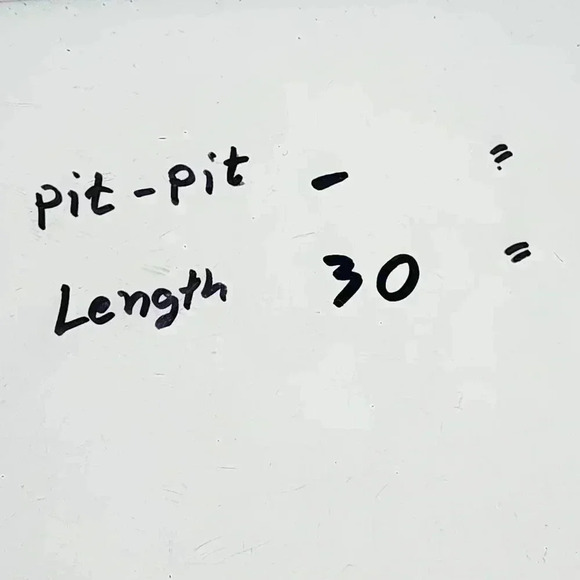 pit - pit - "
Length 30 "